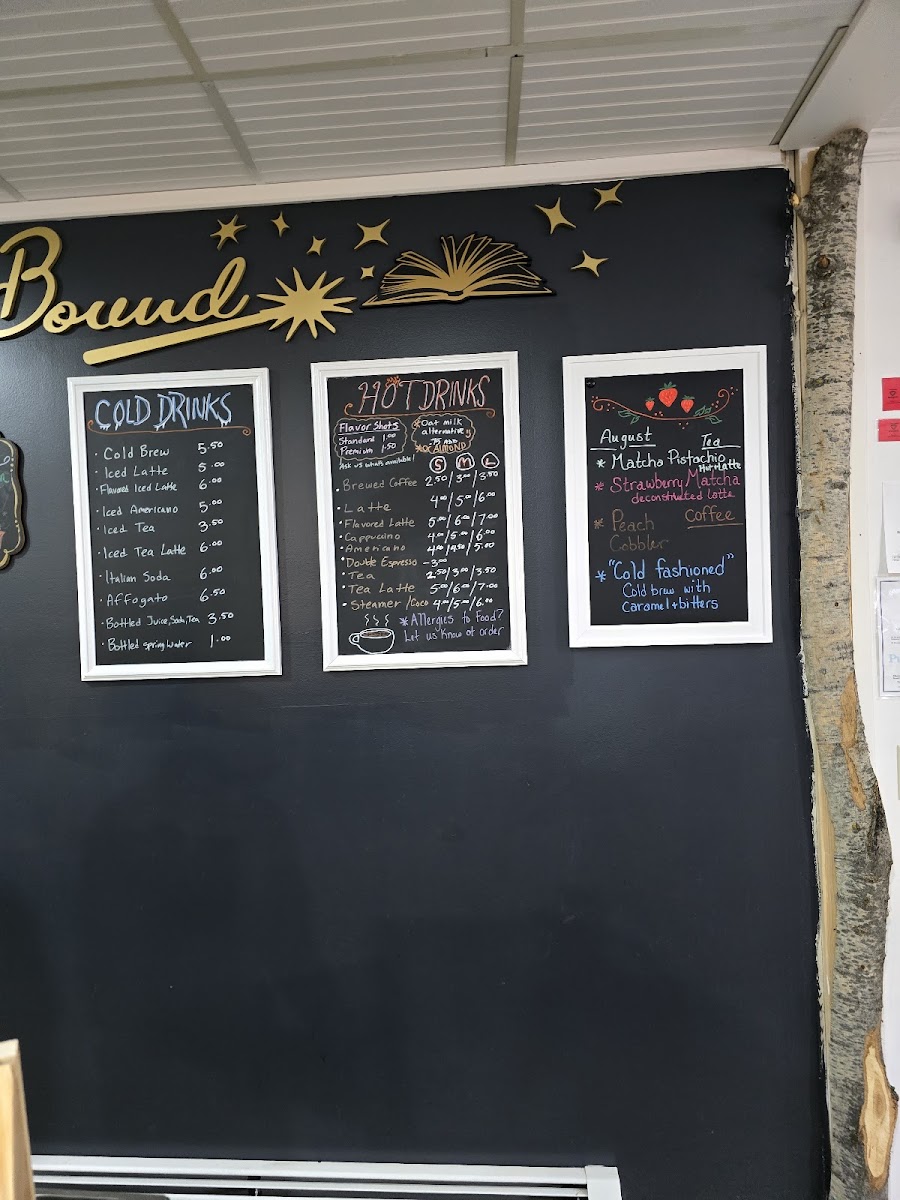 Bound
COLD DRINKS
· Cold Brew 5.50
· Iced Latte 5.00
· Flavored Iced Latte 6.00
· Iced Americano 5.00
· Iced Tea 3.50
· Iced Tea Latte 6.00
· Italian Soda 6.00
· Affogato 6.50
· Bottled Juice, Soda, Tea 3.50
· Bottled Spring Water 1.00
HOT DRINKS
Flavor Shots
Standard 1.00
Premium 1.50
Ask us what's available!
Oat milk
alternative
.75 ADD
OR ALMOND
S M L
· Brewed Coffee 2.50/3.00/3.50
· Latte 4.00/5.00/6.00
· Flavored Latte 5.00/6.00/7.00
· Cappuccino 4.00/5.00/6.00
· Americano 4.00/4.50/5.00
· Double Espresso -3.00
· Tea 2.50/3.00/3.50
· Tea Latte 5.00/6.00/7.00
· Steamer/Coco 4.00/5.00/6.00
*Allergies to Food?
Let us know at order
August Tea
* Matcha Pistachio
Hot Latte
* Strawberry Matcha
deconstructed latte
* Peach Coffee
Cobbler
* "Cold fashioned"
Cold brew with
caramel + bitters